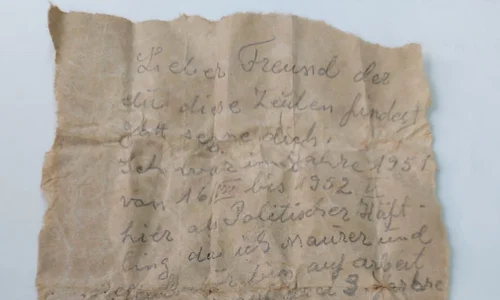 Lieber Freund der
du diese Zeilen findest
gott segne dich.
Ich war im Jahre 1951
von 16 bis 1952
hier als Politischer Häft-
ling da ich Maurer und
bin auf arbeit
3